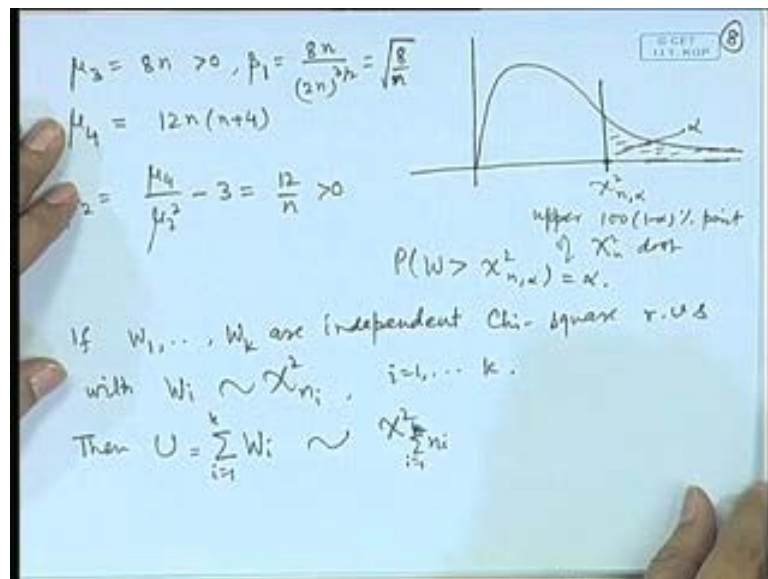 μ₃ = 8n >0, β₁ = 8n / (2n)^{3/2} = √(8/n)
μ₄ = 12n(n+4)
₂ = μ₄/μ₂² - 3 = 12/n >0
© CET
I.I.T. KGP
8
α
χ²_{n,α}
upper 100(1-α)% point
of χ²_n dist
P(W > χ²_{n,α}) = α.
If W₁, ..., W_k are independent Chi-square r.v.s
with Wi ~ χ²_{n_i}, i=1, ... k.
Then U = Σ_{i=1}^{k} Wi ~ χ²_{Σ_{i=1}^{k} ni}